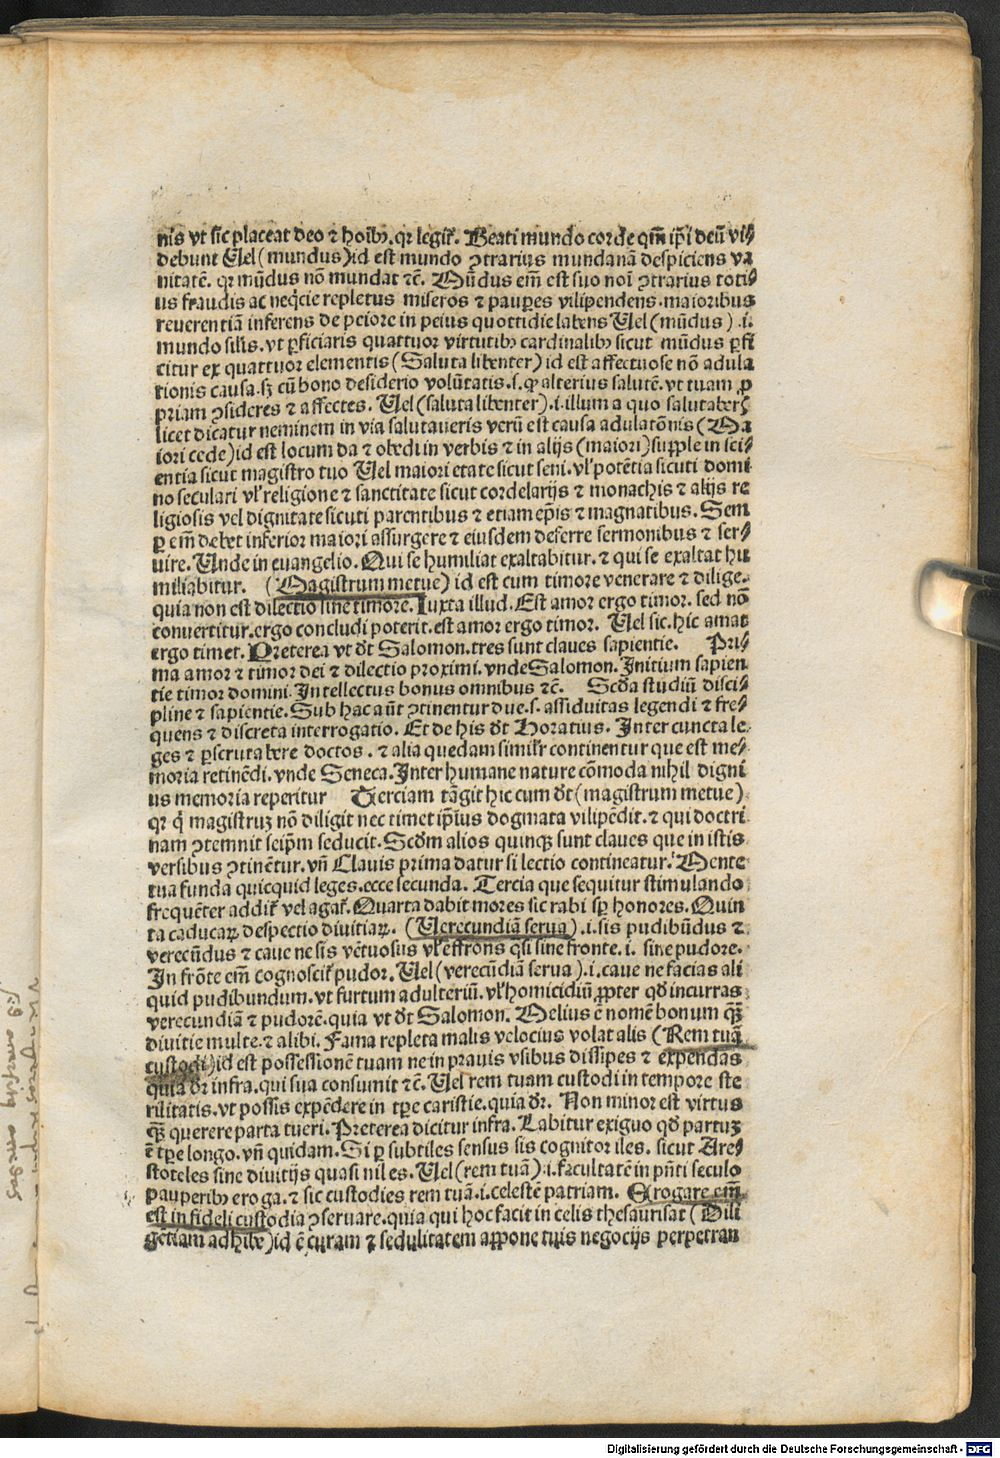 nis vt sic placeat deo ⁊ hoib⁹. qr legit᷑. Beati mundo corde qm̄ ip̄i deū vi⸗
debunt Uel (mundus) id est mundo ꝯtrarius mundanā despiciens va
nitatē. qr mūdus nō mundat ⁊cē. Mūdus em̄ est suo noi ꝯtrarius toti⸗
us fraudis ac neq̄cie repletus miseros ⁊ pauꝑes vilipendens. maioribus
reuerentiā inferens de peiore in peius quottidie labens Uel (mūdus) .i.
mundo silis. vt ꝑficiaris quattuor virtutibꝫ cardinalibꝫ sicut mūdus ꝑfi
citur ex quattuor elementis (Saluta libenter) id est affectuose nō adula
tionis causa. sꝫ cū bono desiderio volūtatis. s. ꝙ alterius salutē. vt tuam ꝓ
priam ꝯsideres ⁊ affectes. Uel (saluta libenter) .i. illum a quo salutaberꝭ
licet dicatur neminem in via salutaueris verū est causa adulatōnis (Ma
iori cede) id est locum da ⁊ obedi in verbis ⁊ in alijs (maiori) supple in sci⸗
entia sicut magistro tuo Uel maiori etate sicut seni. vl᷑ potētia sicuti domi
no seculari vl᷑ religione ⁊ sanctitate sicut cordelarijs ⁊ monachis ⁊ alijs re
ligiosis vel dignitate sicuti parentibus ⁊ etiam ep̄is ⁊ magnatibus. Sem
ꝑ em̄ debet inferior maiori assurgere ⁊ eiusdem deferre sermonibus ⁊ ser⸗
uire. Unde in euangelio. Qui se humiliat exaltabitur. ⁊ qui se exaltat hu
miliabitur. (Magistrum metue) id est cum timore venerare ⁊ dilige.
quia non est dilectio sine timore. Iuxta illud. Est amor ergo timor. sed nō
conuertitur. ergo concludi poterit. est amor ergo timor. Uel sic. hic amat
ergo timet. Preterea vt dt᷑ Salomon. tres sunt claues sapientie. Pri⸗
ma amor ⁊ timor dei ⁊ dilectio proximi. vnde Salomon. Initium sapien
tie timor domini. Intellectus bonus omnibus ⁊cē. Scd̄a studiū disci⸗
pline ⁊ sapientie. Sub hac aūt ꝯtinentur due. s. assiduitas legendi ⁊ fre⸗
quens ⁊ discreta interrogatio. Et de his dt᷑ Horatius. Inter cuncta le⸗
ges ⁊ ꝑscrutabere doctos. ⁊ alia quedam similr᷑ continentur que est me⸗
moria retinēdi. vnde Seneca. Inter humane nature cōmoda nihil digni
us memoria reperitur Terciam tāgit hic cum dt᷑ (magistrum metue)
qr q̇ magistrꝫ nō diligit nec timet ip̄ius dogmata vilipēdit. ⁊ qui doctri
nam ꝯtemnit seip̄m seducit. Scd̄m alios quinqꝫ sunt claues que in istis
versibus ꝯtinētur. vn̄ Clauis prima datur si lectio contineatur. Mente
tua funda quicquid leges. ecce secunda. Tercia que sequitur stimulando
frequēter addit᷑ vel agat᷑. Quarta dabit mores sic rabi sp̄ honores. Quin
ta caducaꝝ despectio diuitiaꝝ. (Uerecundiā serua) .i. sis pudibūdus ⁊
verecūdus ⁊ caue ne sis vētuosus vl᷑ effrons q̄si sine fronte. i. sine pudore.
In frōte em̄ cognoscit᷑ pudor. Uel (verecūdiā serua) .i. caue ne facias ali
quid pudibundum. vt furtum adulteriū. vl᷑ homicidiū ꝓpter qd̄ incurras
verecundiā ⁊ pudorē. quia vt dt᷑ Salomon. Melius ē nomē bonum qꝫ̄
diuitie multe. ⁊ alibi. Fama repleta malis velocius volat alis (Rem tuā
custodi) id est possessionē tuam ne in prauis vsibus dissipes ⁊ expendas
quia dr᷑ infra. qui sua consumit ⁊cē. Uel rem tuam custodi in tempore ste
rilitatis. vt possis expēdere in tp̄e caristie. quia dr᷑. Non minor est virtus
qꝫ̄ querere parta tueri. Preterea dicitur infra. Labitur exiguo qd̄ partuꝫ
ē tp̄e longo. vn̄ quidam. Si ꝑ subtiles sensus sis cognitor iles. sicut Are⸗
stoteles sine diuitijs quasi nil es. Uel (rem tuā) .i. facultatē in pn̄ti seculo
pauperibꝫ eroga. ⁊ sic custodies rem tuā. i. celestē patriam. Erogare em̄
est in fideli custodia ꝯseruare. quia qui hoc facit in celis thesaurisat (Dili
gētiam adhibe) id ē curam ⁊ sedulitatem appone tuis negocijs perpetran
Digitalisierung gefördert durch die Deutsche Forschungsgemeinschaft - DFG